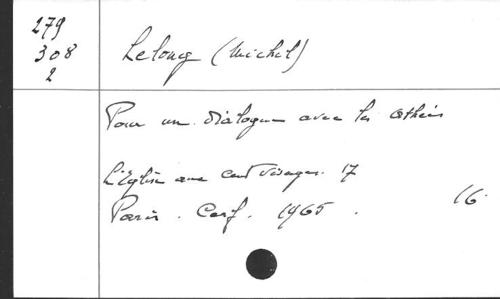 279
308
2
Lelong (Michel)
Pour un dialogue avec les athées
L'Eglise aux cent visages. 17
Paris. Cerf. 1965.
16